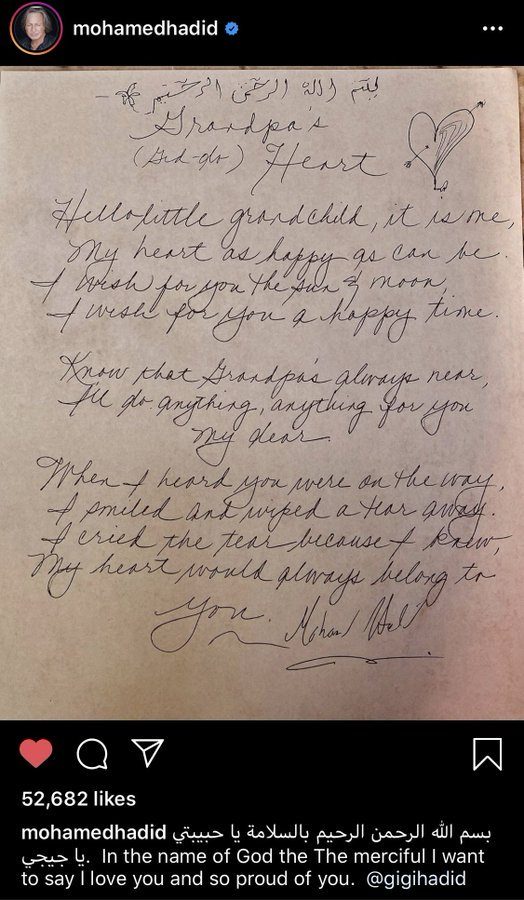 mohamedhadid
بسم الله الرحمن الرحيم
Grandpa's
(Gid-do) Heart
Hello little grandchild, it is me,
My heart as happy as can be.
I wish for you the sun & moon,
I wish for you a happy time.
Know that Grandpa's always near,
I'll do anything, anything for you
my dear.
When I heard you were on the way,
I smiled and wiped a tear away.
I cried the tear because I knew,
My heart would always belong to
you.
52,682 likes
mohamedhadid بسم الله الرحمن الرحيم بالسلامة يا حبيبتي
يا جيجي. In the name of God the The merciful I want
to say I love you and so proud of you. @gigihadid